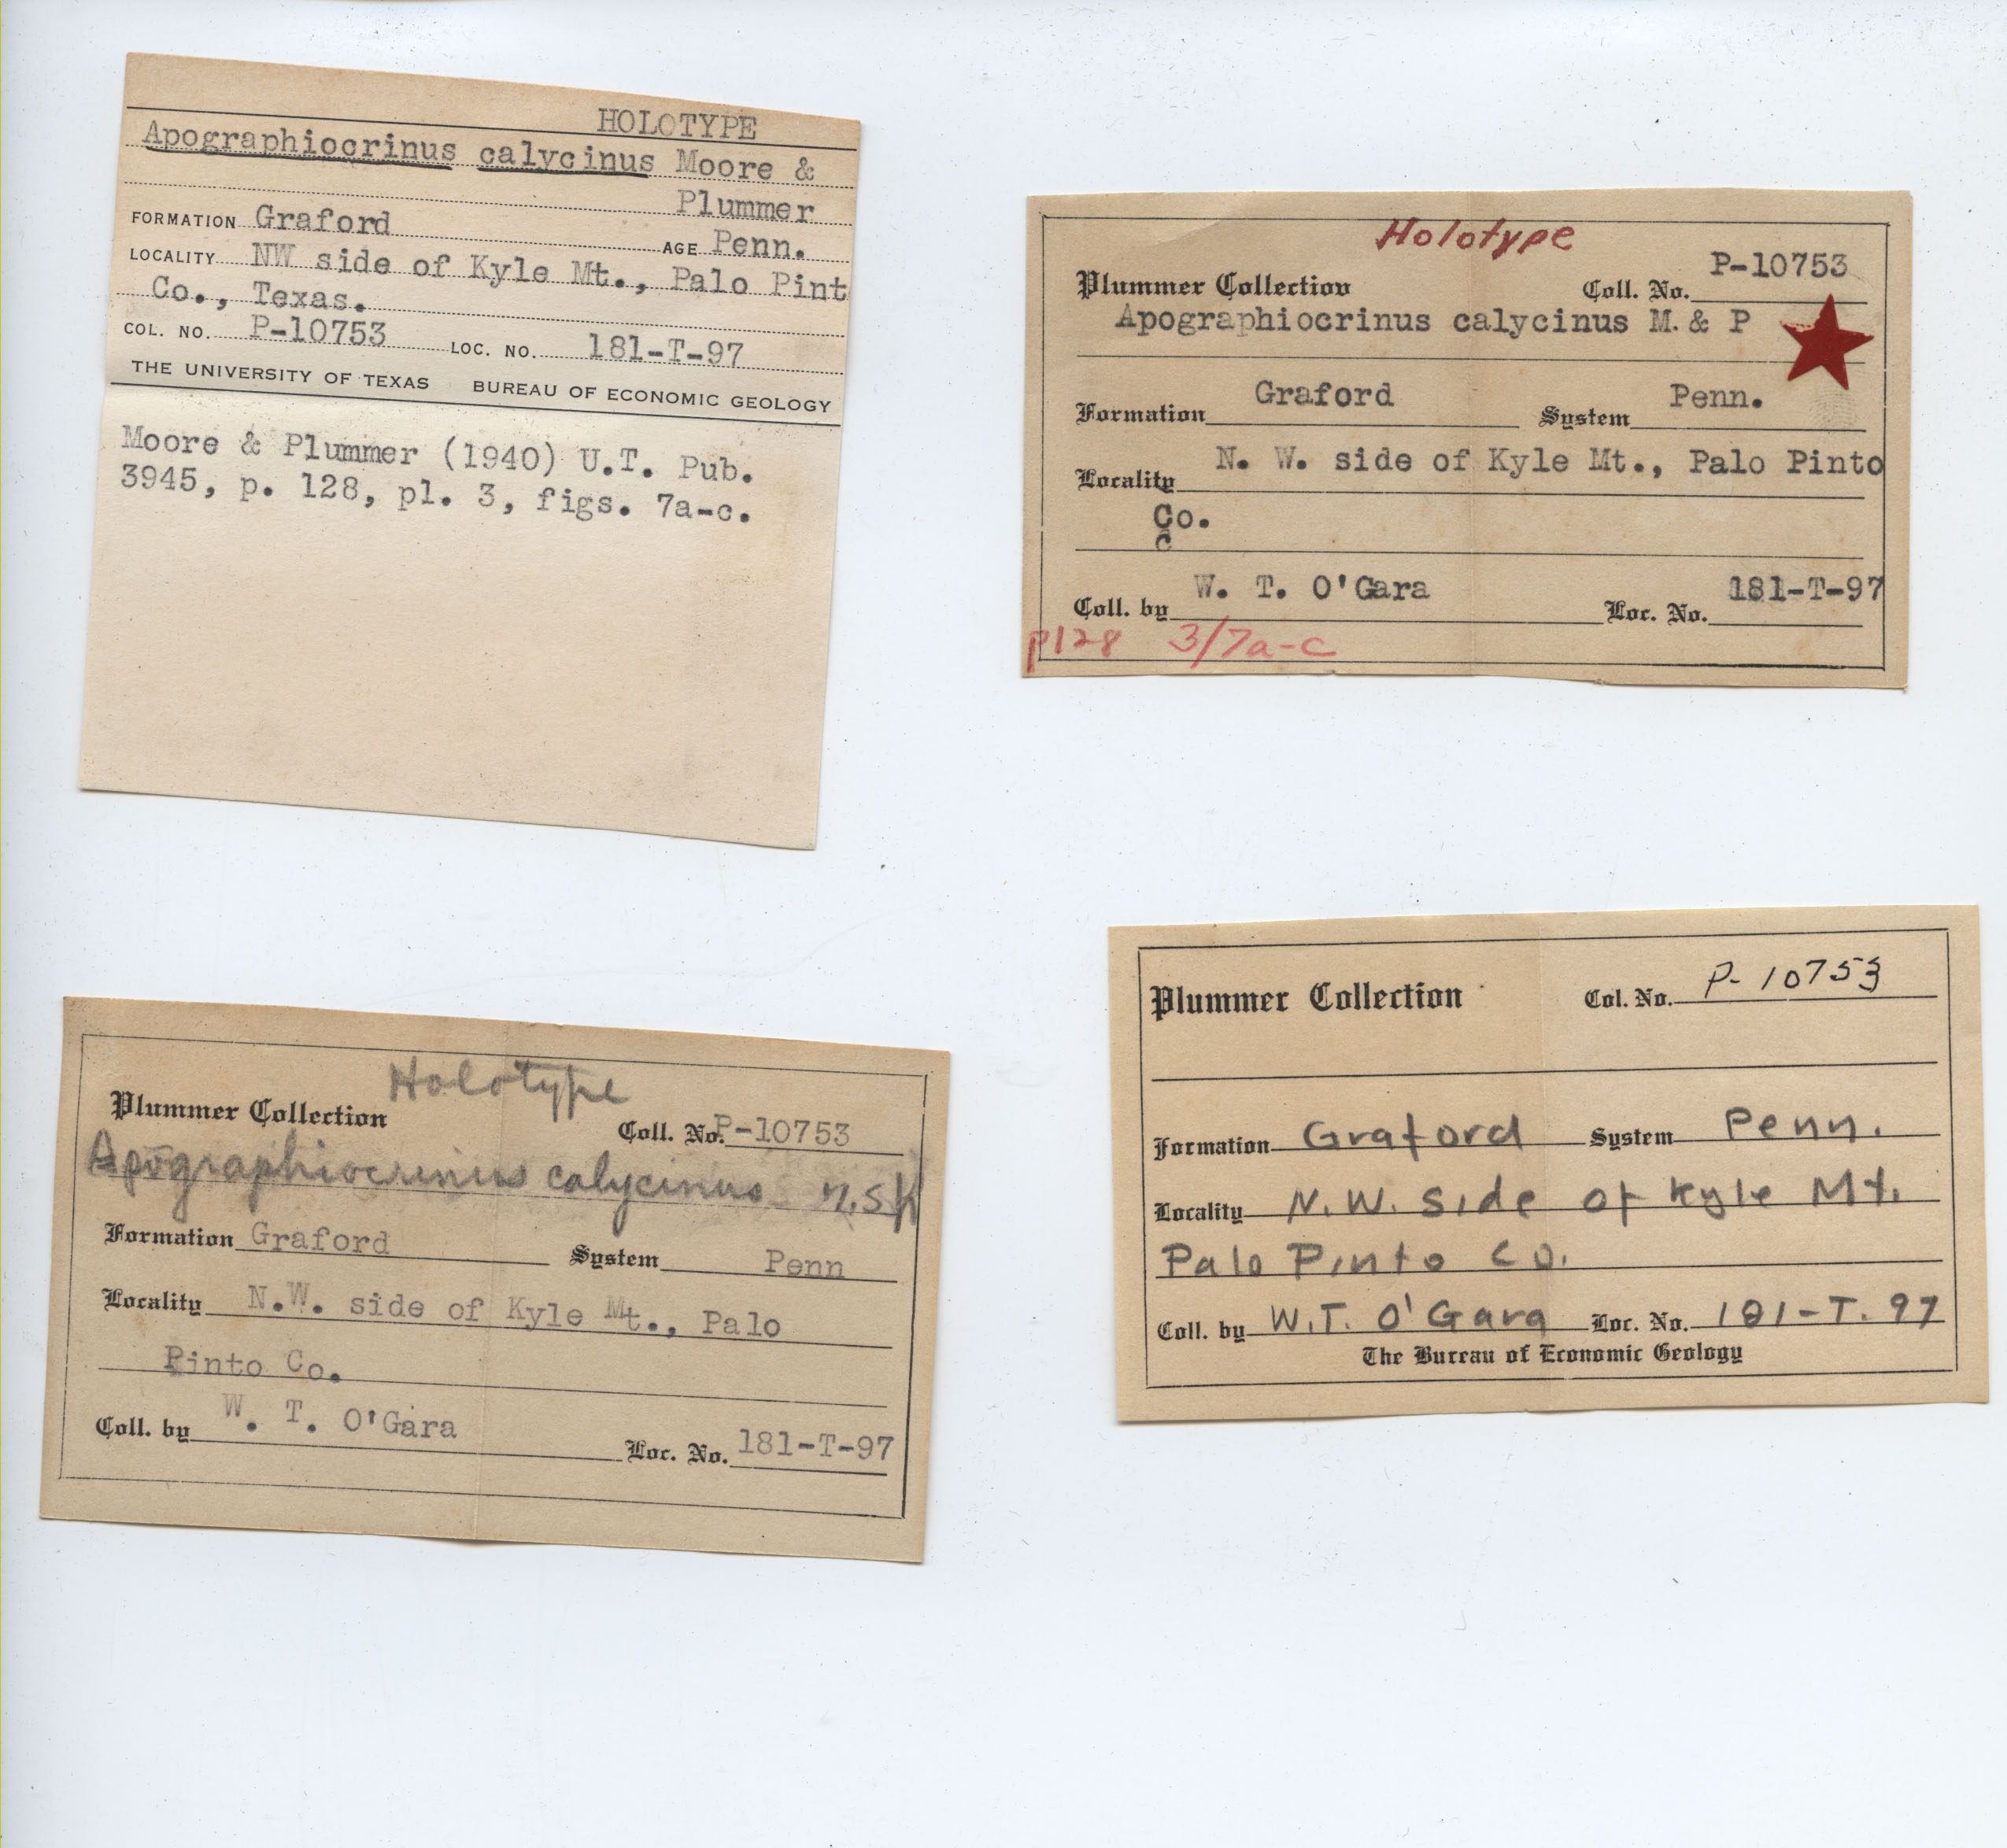 HOLOTYPE
Apographiocrinus calycinus Moore &
Plummer
FORMATION Graford AGE Penn.
LOCALITY NW side of Kyle Mt., Palo Pint
Co., Texas.
COL. NO. P-10753 LOC. NO. 181-T-97
THE UNIVERSITY OF TEXAS BUREAU OF ECONOMIC GEOLOGY
Moore & Plummer (1940) U.T. Pub.
3945, p. 128, pl. 3, figs. 7a-c.
Holotype
Plummer Collection Coll. No. P-10753
Apographiocrinus calycinus M. & P
Formation Graford System Penn.
Locality N. W. side of Kyle Mt., Palo Pinto
Co.
c
Coll. by W. T. O'Gara Loc. No. 181-T-97
p128 3/7a-c
Holotype
Plummer Collection Coll. No. P-10753
Apographiocrinus calycinus n.sp
Formation Graford System Penn
Locality N.W. side of Kyle Mt., Palo
Pinto Co.
Coll. by W. T. O'Gara Loc. No. 181-T-97
Plummer Collection Col. No. P-10753
Formation Graford System Penn.
Locality N.W. side of Kyle Mt.
Palo Pinto Co.
Coll. by W.T. O'Gara Loc. No. 181-T-97
The Bureau of Economic Geology